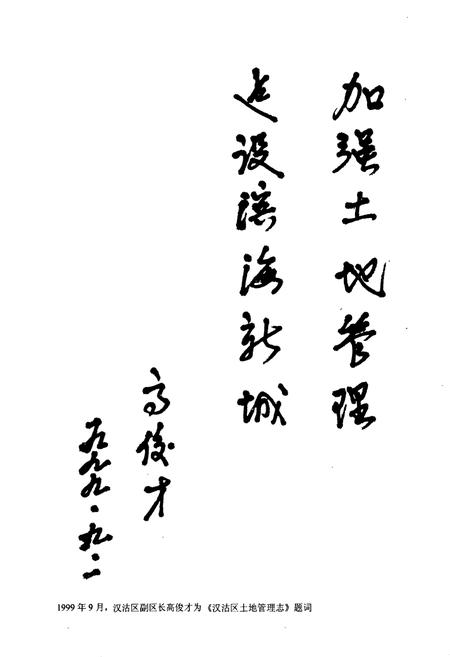 加强土地管理
建设滨海新城
高俊才
一九九九·九·二
1999年9月，汉沽区副区长高俊才为《汉沽区土地管理志》题词